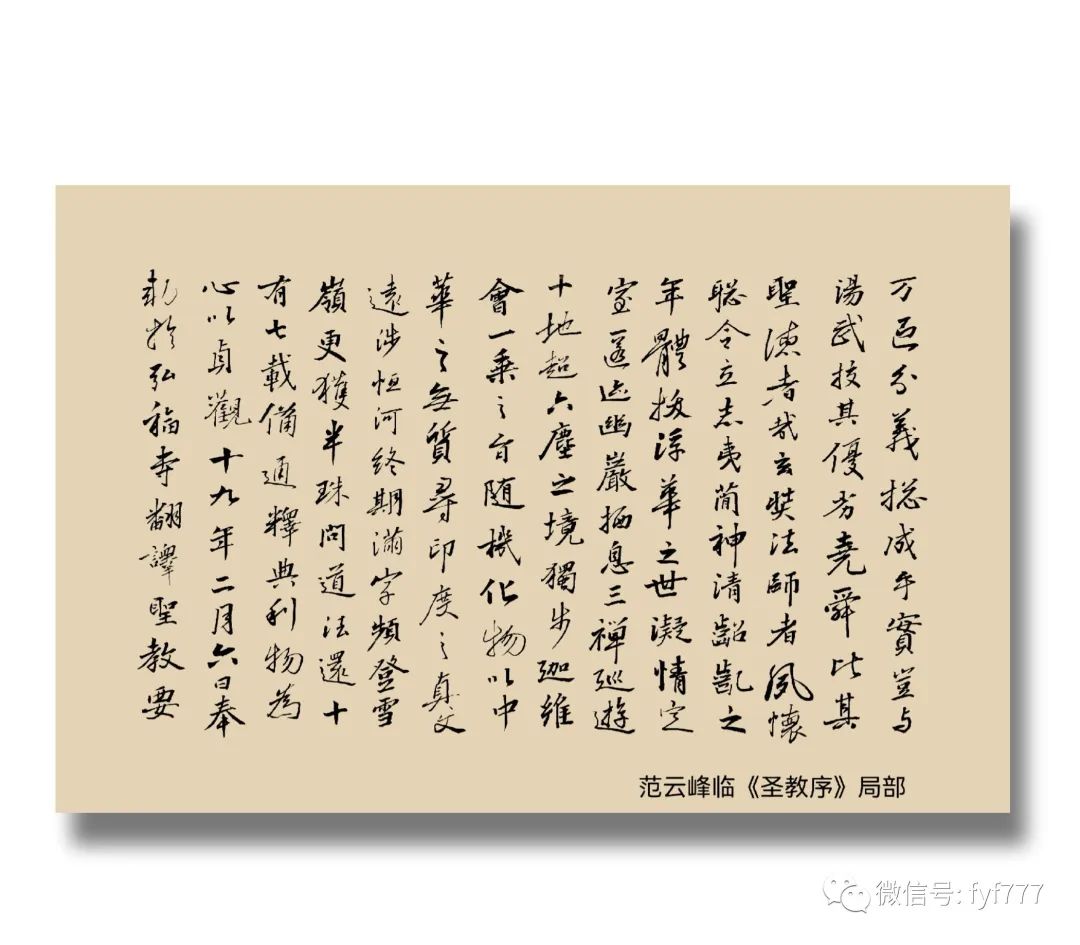 万區分義揔成乎實豈与
湯武挍其優劣堯舜比其
聖德者哉玄奘法師者夙懷
聡令立志夷簡神清齠齔之
年體拔浮華之世凝情定
室匿迹幽巖栖息三禪巡遊
十地超六塵之境獨步迦維
會一乘之旨随機化物以中
華之無質尋印度之真文
遠涉恒河終期滿字頻登雪
嶺更獲半珠問道法還十
有七載備通釋典利物為
心以貞觀十九年二月六日奉
敕於弘福寺翻譯聖教要
范云峰临《圣教序》局部
微信号: fyf777